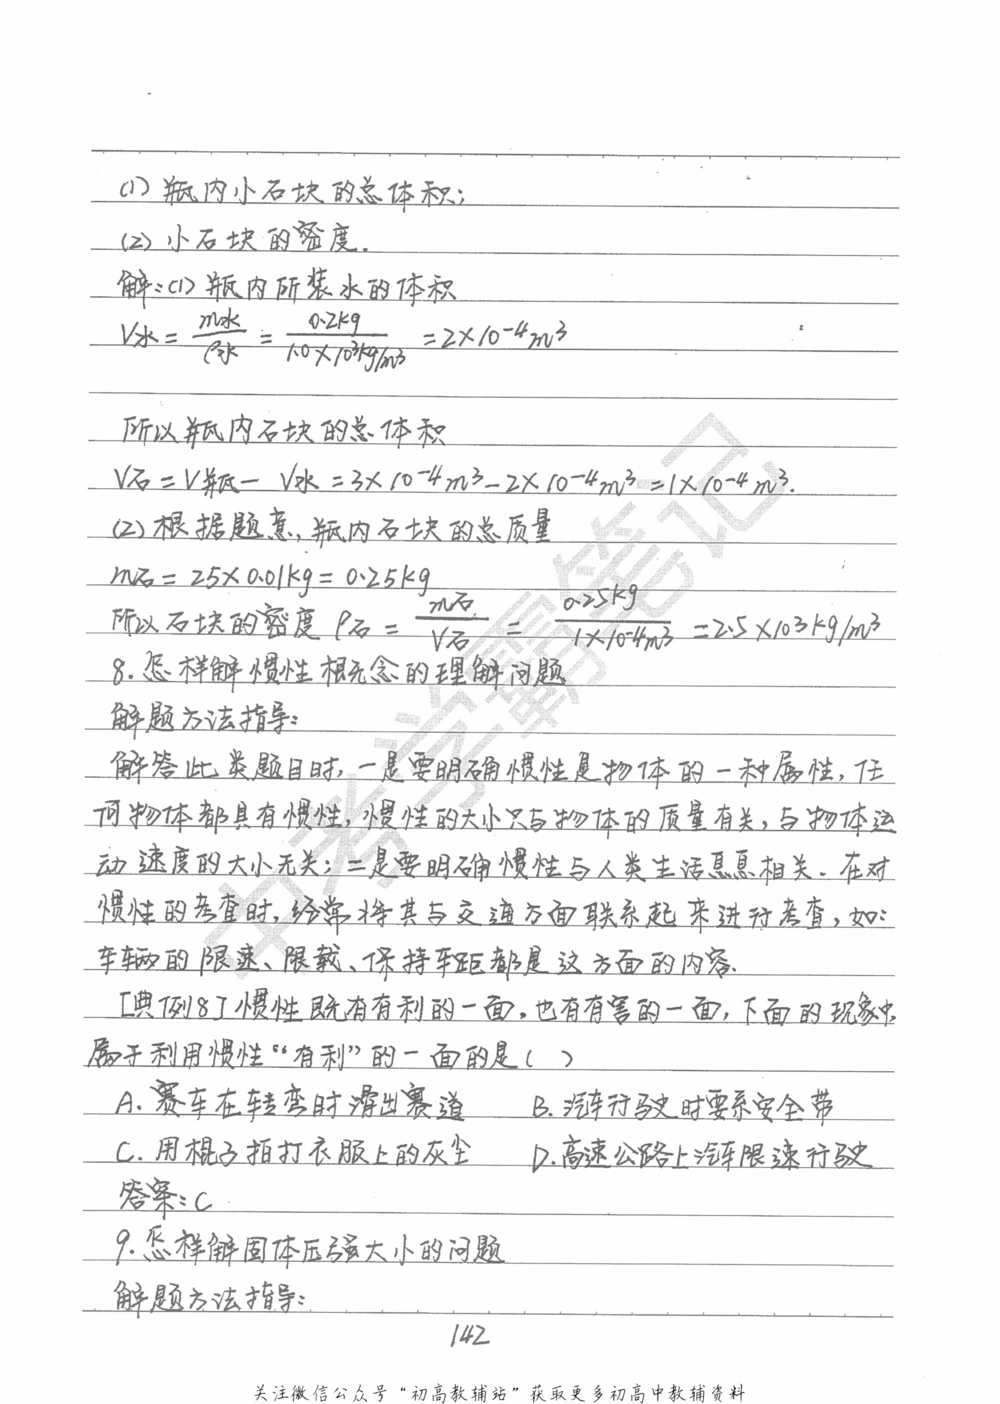 (1) 瓶内小石块的总体积;
(2) 小石块的密度.
解:(1) 瓶内所装水的体积
V水 = m水/ρ水 = 0.2kg/1.0×10³kg/m³ = 2×10⁻⁴m³
所以瓶内石块的总体积
V石 = V瓶 - V水 = 3×10⁻⁴m³ - 2×10⁻⁴m³ = 1×10⁻⁴m³.
(2) 根据题意, 瓶内石块的总质量
m石 = 25×0.01kg = 0.25kg
所以石块的密度 ρ石 = m石/V石 = 0.25kg/1×10⁻⁴m³ = 2.5×10³kg/m³
8. 怎样解惯性概念的理解问题
解题方法指导:
解答此类题目时, 一是要明确惯性是物体的一种属性, 任
何物体都具有惯性, 惯性的大小只与物体的质量有关, 与物体运
动速度的大小无关; 二是要明确惯性与人类生活息息相关. 在对
惯性的考查时, 经常将其与交通方面联系起来进行考查, 如:
车辆的限速、限载、保持车距都是这方面的内容.
[典例8] 惯性既有有利的一面, 也有有害的一面, 下面的现象中,
属于利用惯性“有利”的一面的是( )
A. 赛车在转弯时滑出赛道 B. 汽车行驶时要系安全带
C. 用棍子拍打衣服上的灰尘 D. 高速公路上汽车限速行驶
答案: C
9. 怎样解固体压强大小的问题
解题方法指导:
142
关注微信公众号“初高教辅站”获取更多初高中教辅资料
中考学霸笔记